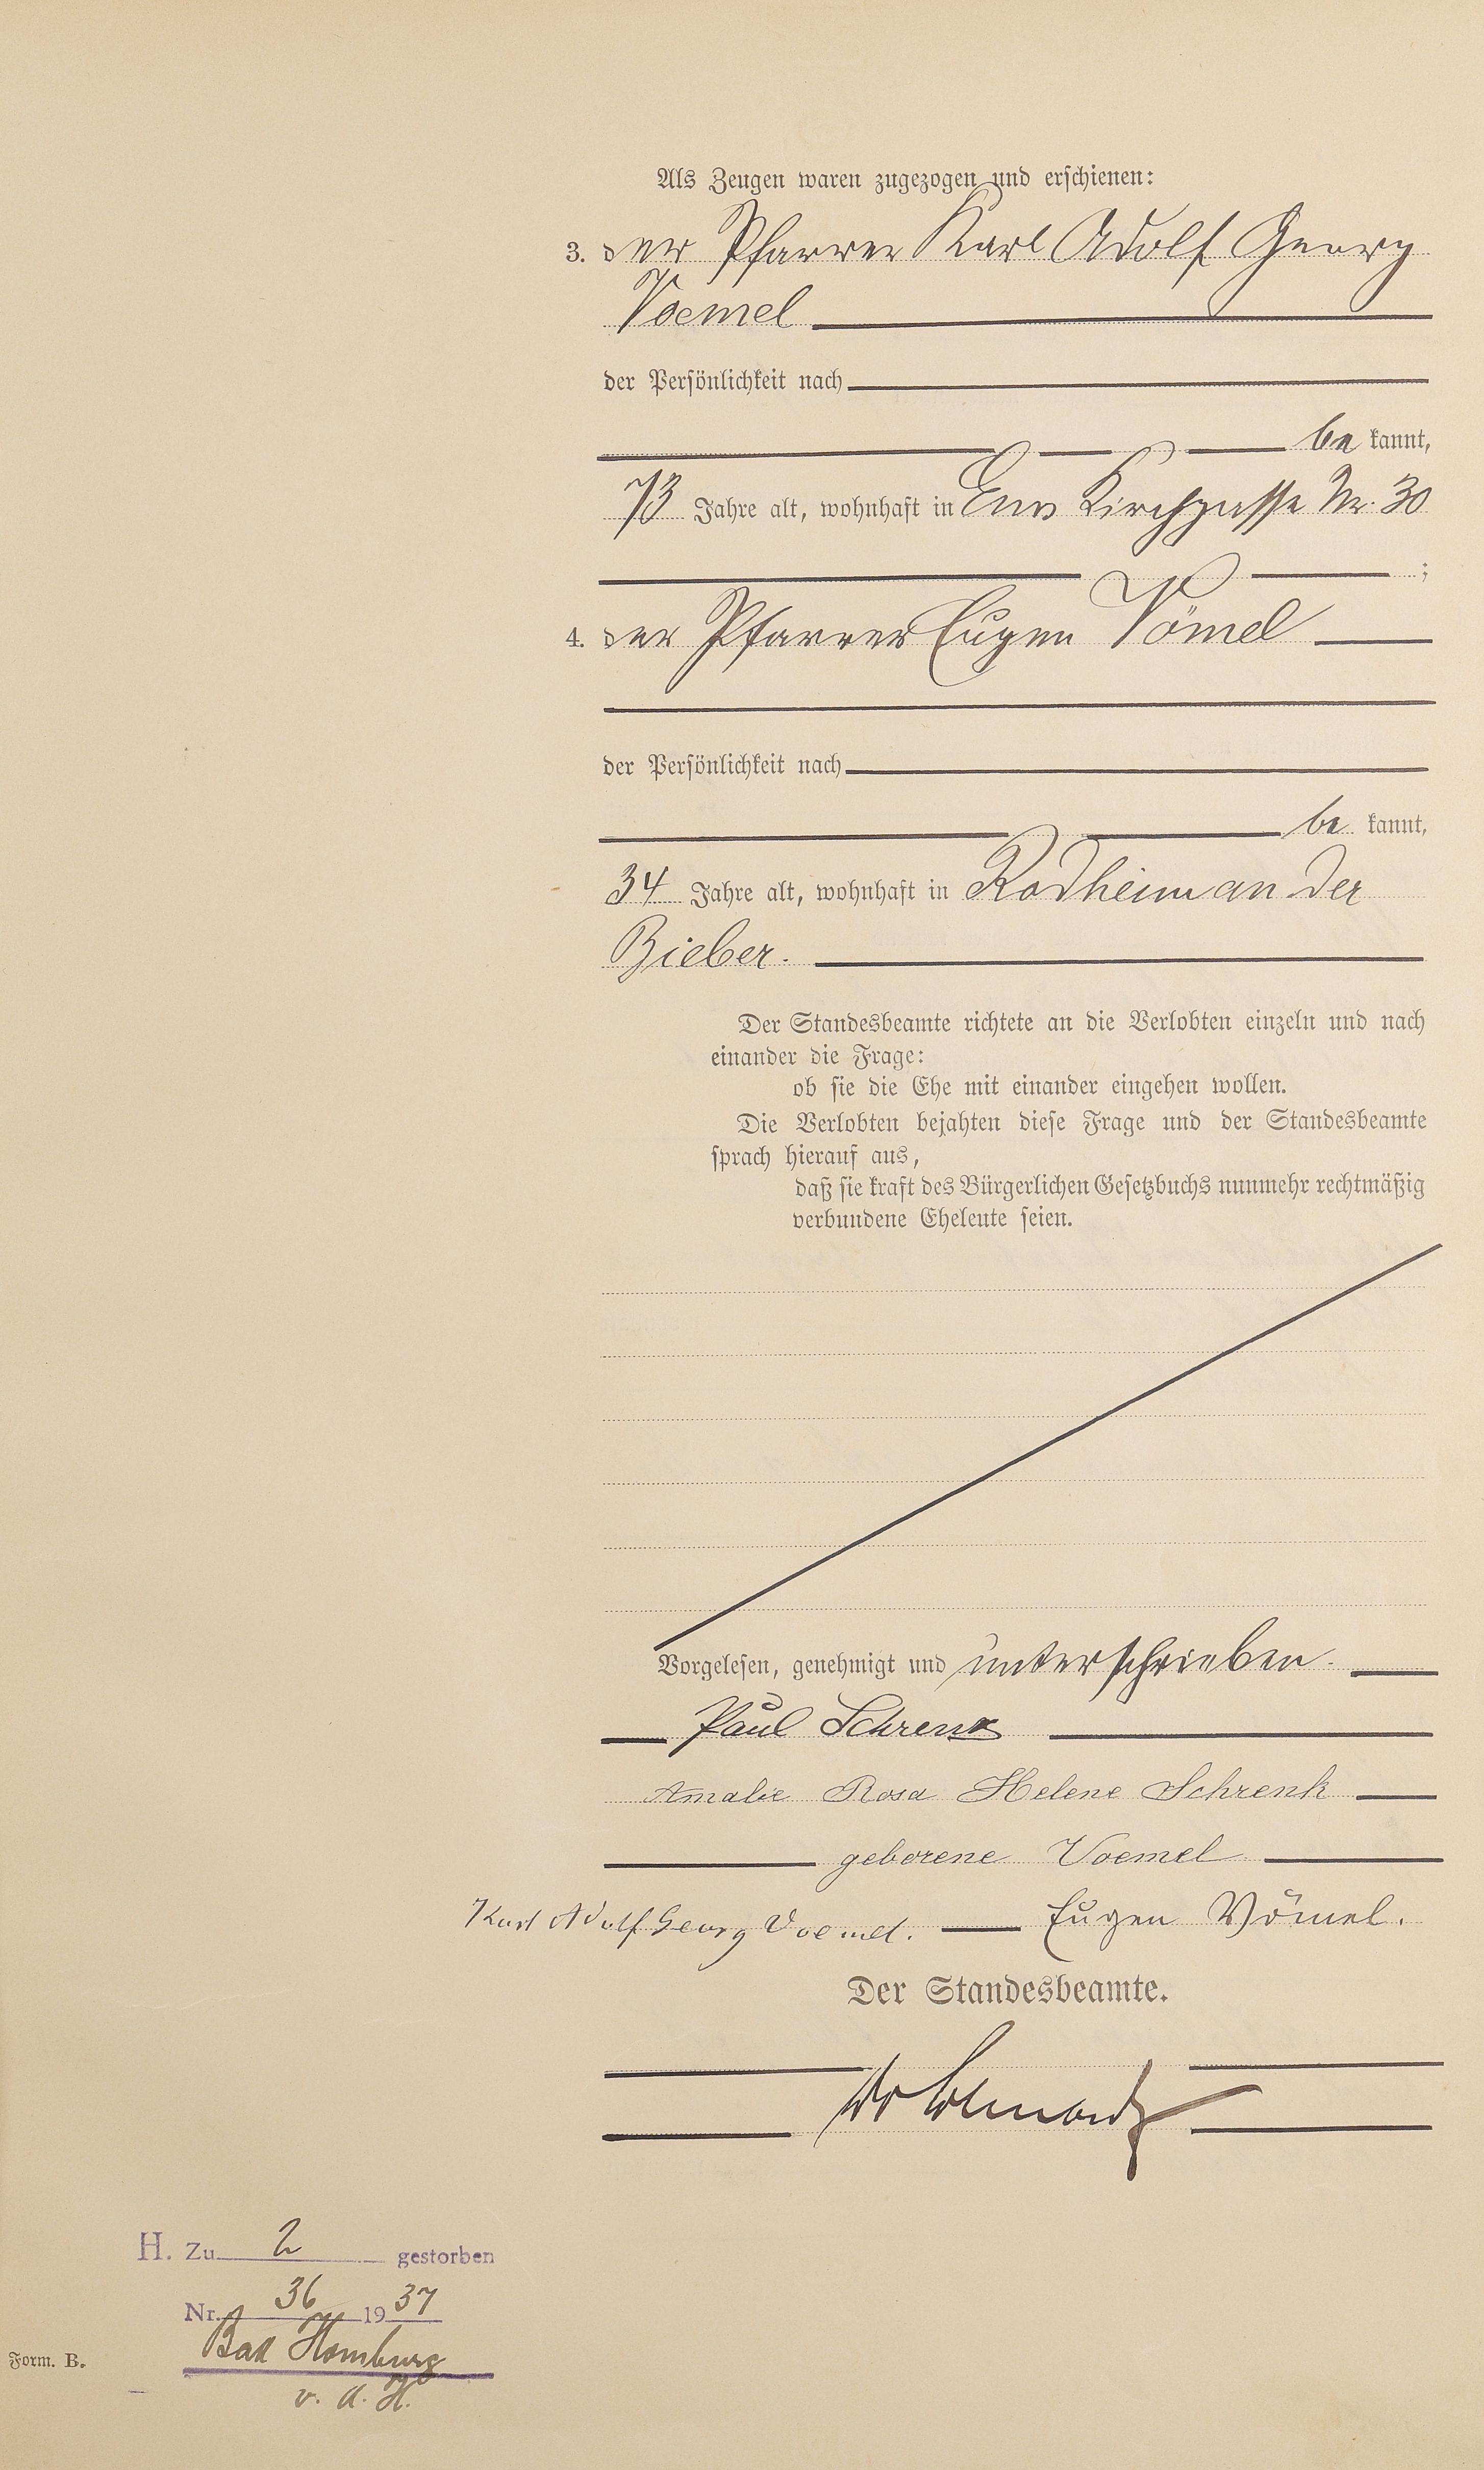 Als Zeugen waren zugezogen und erschienen:
3. der Pfarrer Karl Adolf Georg
Voemel
der Persönlichkeit nach
be kannt,
73 Jahre alt, wohnhaft in Ems Kirchgasse Nr. 30
;
4. der Pfarrer Eugen Vömel
der Persönlichkeit nach
be kannt,
34 Jahre alt, wohnhaft in Rodheim an der
Bieber.
Der Standesbeamte richtete an die Verlobten einzeln und nach
einander die Frage:
ob sie die Ehe mit einander eingehen wollen.
Die Verlobten bejahten diese Frage und der Standesbeamte
sprach hierauf aus,
daß sie kraft des Bürgerlichen Gesetzbuchs nunmehr rechtmäßig
verbundene Eheleute seien.
Vorgelesen, genehmigt und unterschrieben.
Paul Schrenk
Amalie Rosa Helene Schrenk
geborene Voemel
Karl Adolf Georg Voemel. Eugen Vömel.
Der Standesbeamte.
H. Zu 2 gestorben
Nr. 36 1937
Bad Homburg
v. d. H.
Form. B.